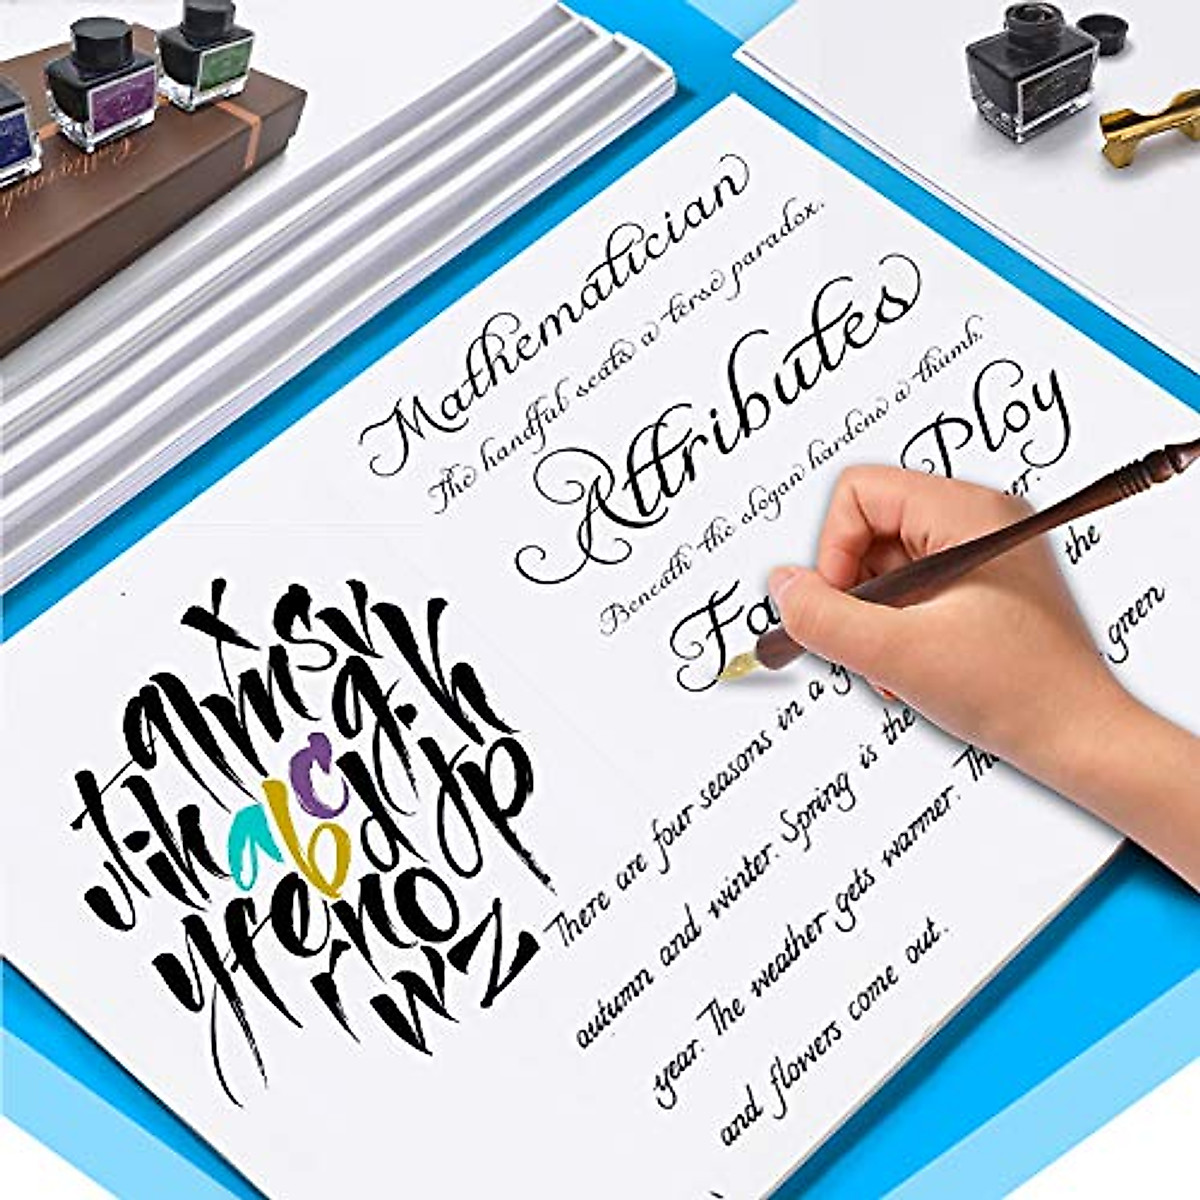 Mathematician
The handful seats a terse paradox.
Attributes
Beneath the slogan hardens a thumb.
Ploy
Fa
the
There are four seasons in a
green
autumn and winter. Spring is the
year. The weather gets warmer. Th
and flowers come out.
x m s v
q l g k
t i h a b c d j p
y f e r n o
r w z